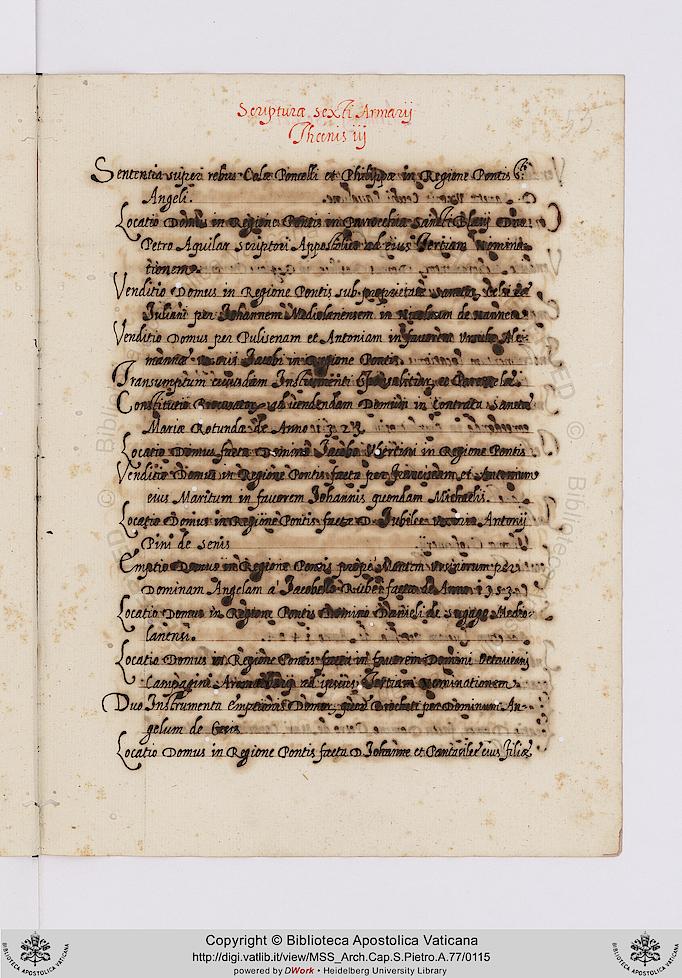 Scripturæ sexti Armarij
Thecnis iij
Sententia super rebus Colæ Poncelli et Philippæ in Regione Pontis S.ti
Angeli.
Locatio Domus in Regione Pontis in Parrochia Sancti Blasij Dno
Petro Aquilar Scriptori Appostolico ad eius Tertiam Nomina-
tionem.
Venditio Domus in Regione Pontis sub proprietate Celsi et
Juliani per Johannem Mediolanensem in de nannes
Venditio Domus per Pulisenam et Antoniam in favorem Ale-
mannæ uxoris Jacobi in Regione Pontis
Transumptum cuiusdam Instrumenti
Constitutio ad vendendam Domum in Contrata Sanctæ
Mariæ Rotundæ de Anno 1323
Locatio Domus facta Domino Jacobo Ubertini in Regione Pontis
Venditio Domus in Regione Pontis facta per Franciscam et Antonium
eius Maritum in favorem Johannis quondam Michaelis.
Locatio Domus in Regione Pontis facta D. Jubilee uxori Antonij
Pini de Senis
Emptio Domus in Regione Pontis prope Montem Ursinorum per
Dominam Angelam à Jacobello Rubeo facta de Anno 1353
Locatio Domus in Regione Pontis Domino Danieli de Medio-
lanensi.
Locatio Domus in Regione Pontis facta in favorem Domini Octaviani
Campagini ad ipsius Tertiam nominationem
Duo Instrumenta Emptionis Domorum per Dominum An-
gelum de
Locatio Domus in Regione Pontis facta D. Johanne et Pantasilee eius filiæ
Copyright © Biblioteca Apostolica Vaticana
http://digi.vatlib.it/view/MSS_Arch.Cap.S.Pietro.A.77/0115
powered by DWork • Heidelberg University Library